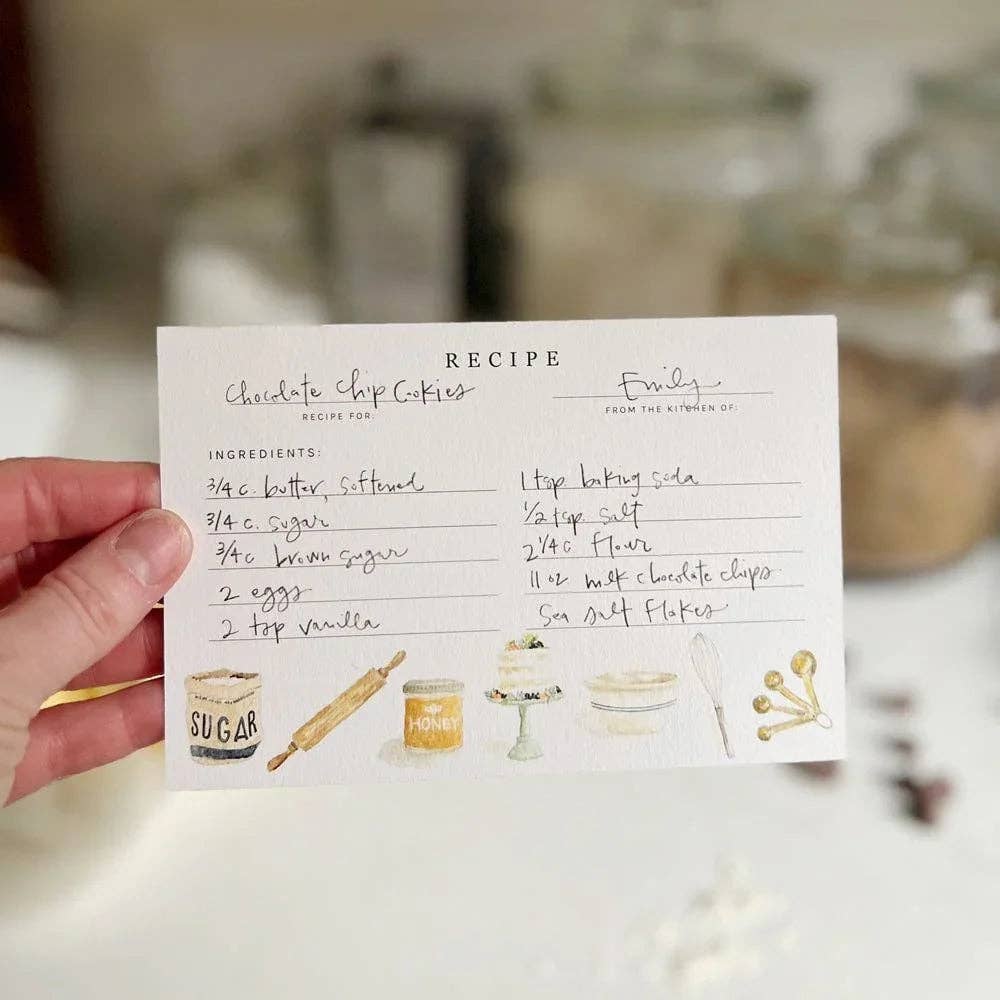 RECIPE
Chocolate Chip Cookies
Emily
RECIPE FOR:
FROM THE KITCHEN OF:
INGREDIENTS:
3/4 c. butter, softened
3/4 c. sugar
3/4 c brown sugar
2 eggs
2 tsp vanilla
1 tsp baking soda
1/2 tsp. salt
2 1/4 c flour
11 oz milk chocolate chips
Sea salt flakes
SUGAR
HONEY